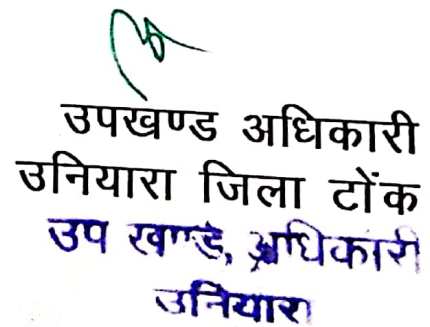 उपखण्ड अधिकारी
उनियारा जिला टोंक
उप खण्ड, अधिकारी
उनियारा